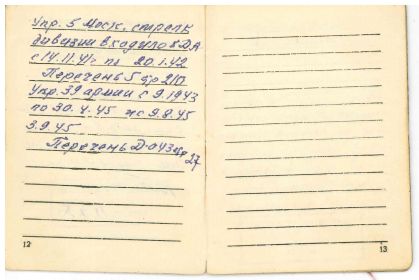 Упр. 5 Моск. стрелк
дивизии входило в ДА
с 14.11.41г по 20.1.42
Перечень 5 стр 210
Упр. 39 армии с 9.1943
по 30.4.45 и с 9.8.45
3.9.45
Перечень Д-043 стр 27
12
13